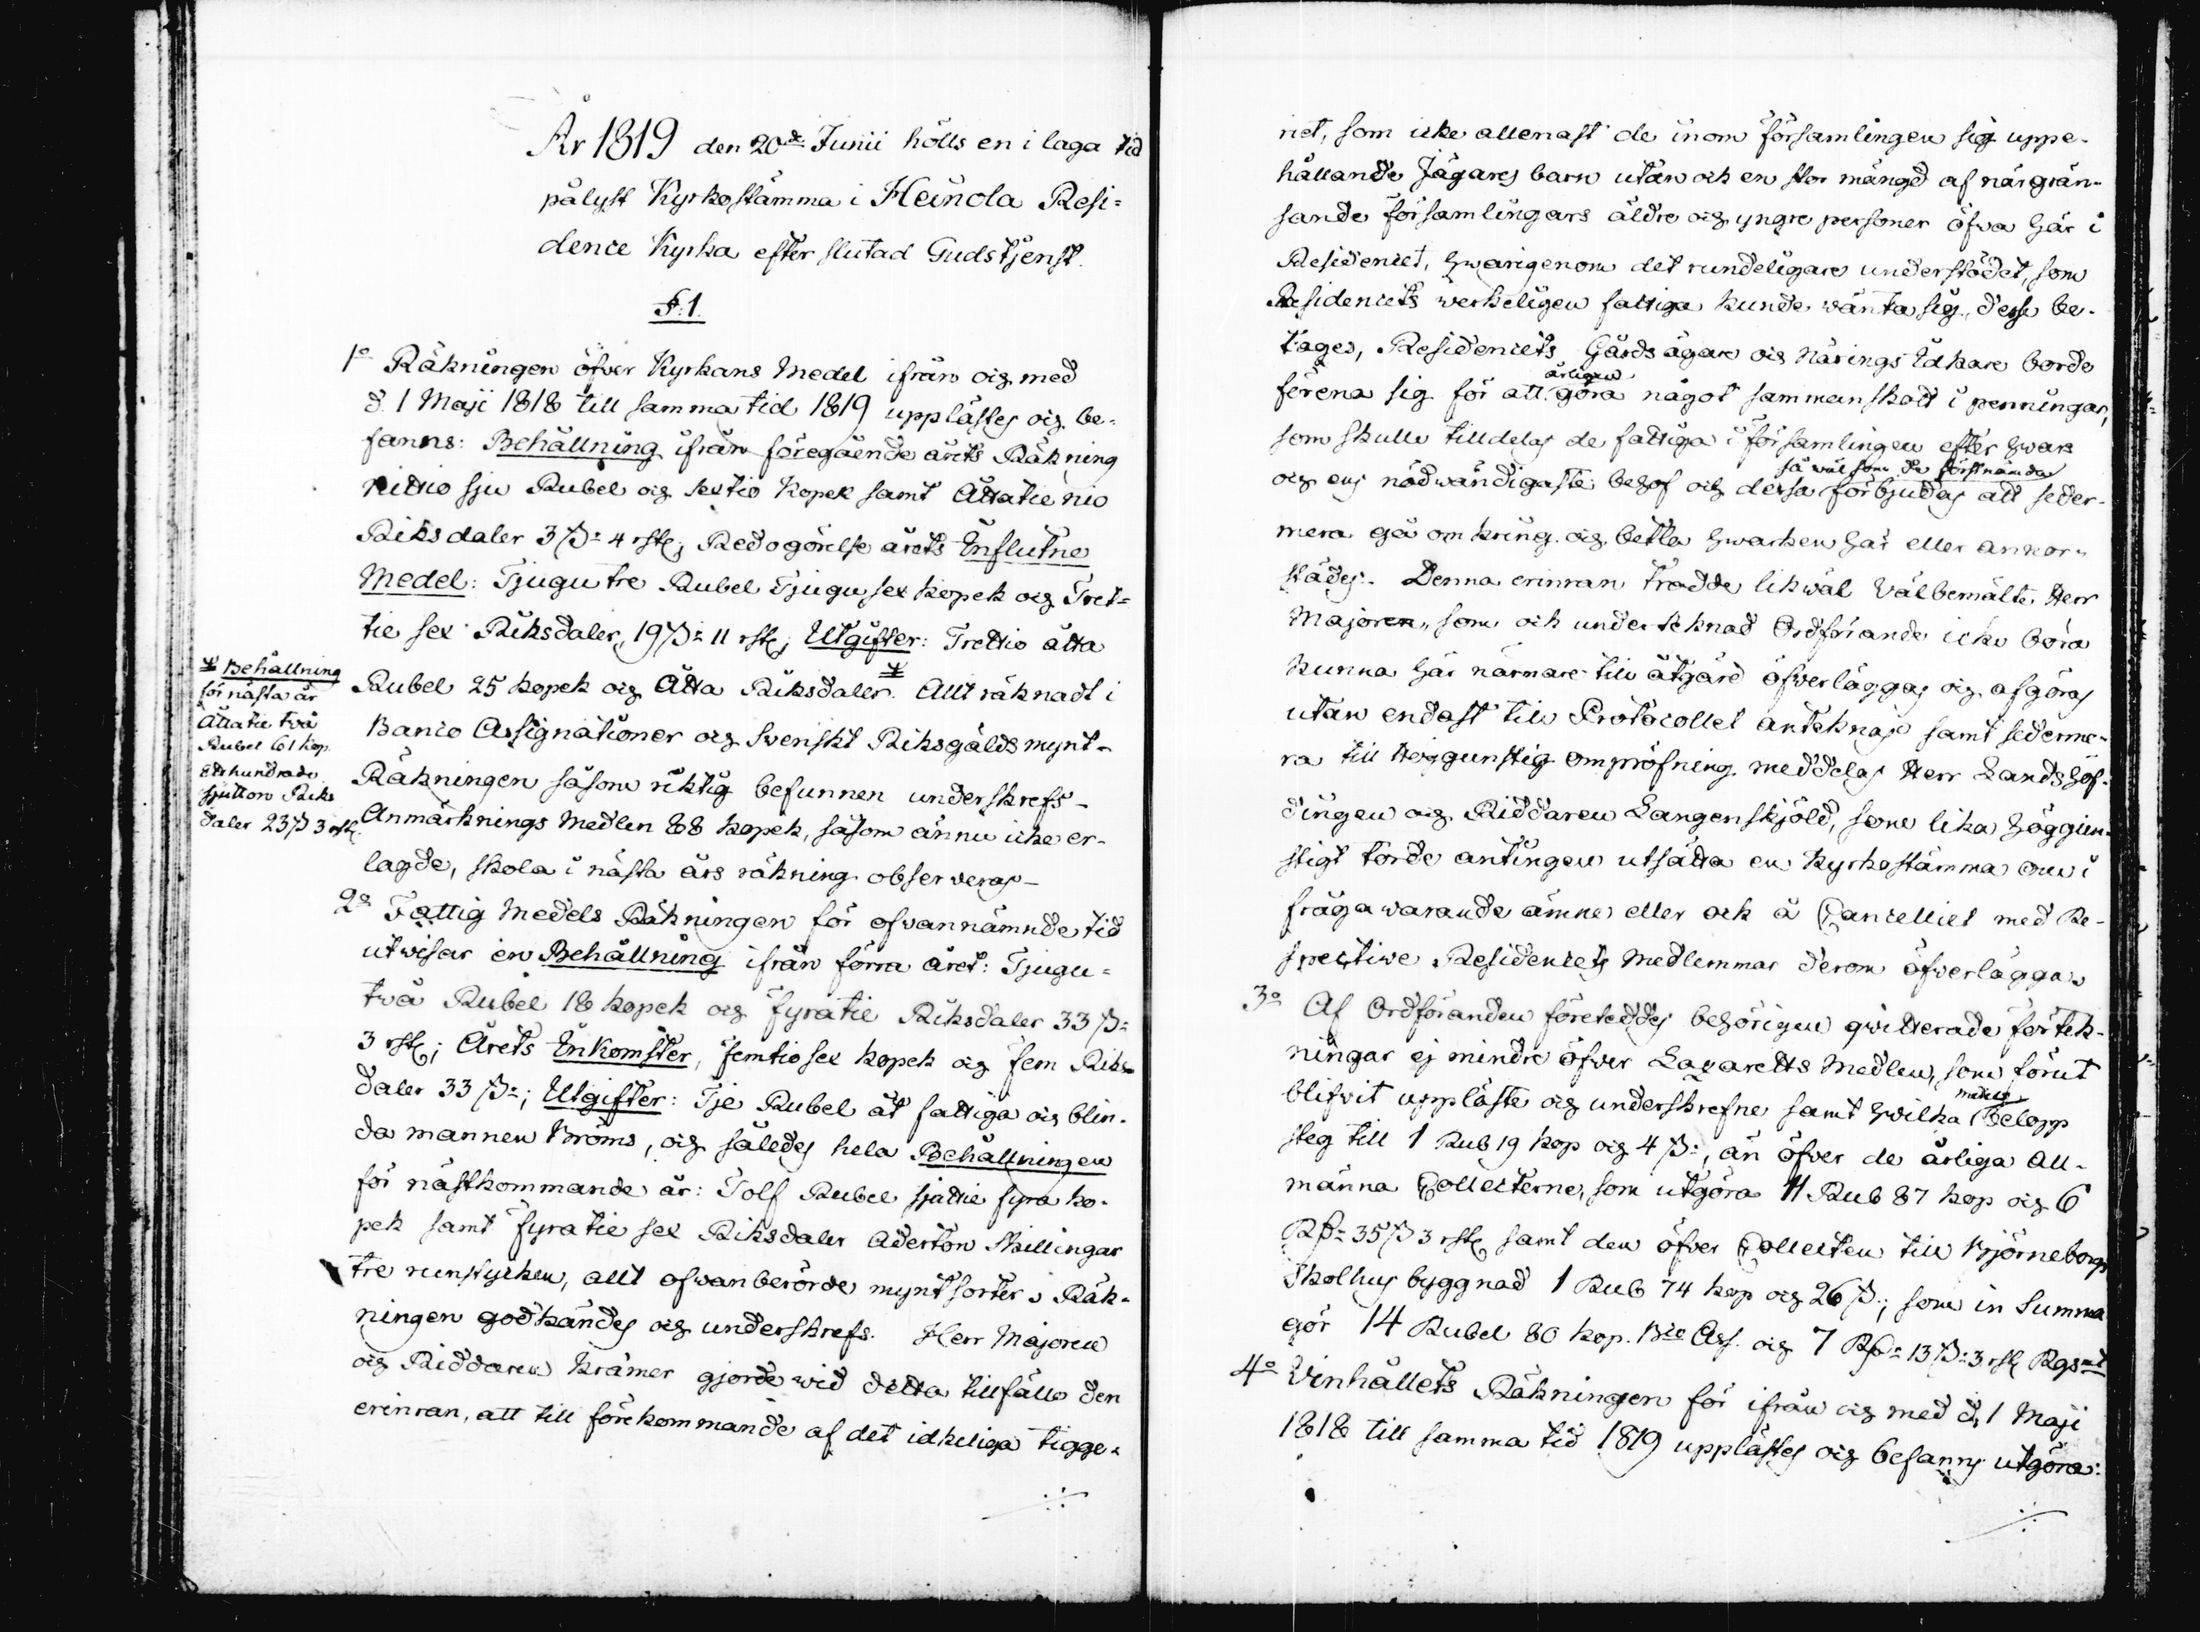 År 1819 den 20de Junii hölls en i laga tid
pålyst Kyrkostämma i Heinola Resi=
dence Kyrka efter slutad Gudstjenst.
§.1.
1o Räkningen öfver Kyrkans Medel ifrån och med
d. 1 Maji 1818 till samma tid 1819 upplästes och be-
fanns: Behållning ifrån föregående årets Räkning
nittio sju Rubel och sextio Kopek samt Åttatie nio
Riksdaler 3 ß: 4 rst; Redogörelse årets Influtne
Medel: Tjugu tre Rubel Tjugu sex kopek och Tret=
tie sex Riksdaler, 19 ß: 11 rst; Utgifter: Trettio åtta
Rubel 25 kopek och Åtta Riksdaler. Allt räknadt i
Banco Assignationer och Svenskt Riksgälds mynt-
Räkningen såsom riktig befunnen underskrefs-
Anmärknings Medlen 88 kopek, såsom ännu icke er-
lagde, skola i nästa års räkning observeras-
Behållning
för nästa år
Åttatie två
Rubel 61 kop.
Etthundrade
sjutton Riks
daler 23 ß 3 rst.
2o Fattig Medels Räkningen för ofvannämnde tid
utvisar en Behållning ifrån förra året: Tjugu-
två Rubel 18 kopek och fyratie Riksdaler 33 ß:
3 rst; Årets Inkomster, femtio sex kopek och fem Riks-
daler 33 ß:; Utgifter: Tje Rubel åt fattiga och blin-
da mannen Broms, och således hela Behållningen
för nästkommande år: Tolf Rubel sjuttie fyra ko-
pek samt fyratie sex Riksdaler Aderton Skillingar
tre runstycken, allt ofvanberörde myntsorter; Räk-
ningen godkändes och underskrefs. Herr Majoren
och Riddaren Krämer gjorde wid detta tillfälle den
erinran, att till förekommande af det idkeliga tigge-
riet, som icke allenast de inom församlingen sig uppe-
hållande Jägares barn utan och en stor mängd af närgrän-
sande församlingars äldre och yngre personer öfva här i
Residencet, hwarigenom det rundeligare understödet, som
Residencets werkeligen fattiga kunde wänta sig, desse be-
tages, Residencets Gårdsägare och Närings Idkare borde
förena sig för att årligen göra något sammanskott i penningar,
som skulle tilldelas de fattiga i församlingen efter hwars
och ens nödwändigaste behof och dessa så wäl som de förstnämda förbjudas att seder-
mera gå omkring och betla hwarken här eller annor-
städes. Denna erinran trodde likwäl Välbemälte Herr
Majoren, som och undertecknad Ordförande icke böra
kunna här närmare till åtgärd öfverläggas och afgöras
utan endast till Protocollet antecknas samt sederme-
ra till Höggunstig ompröfning meddelas Herr Landshöf-
dingen och Riddaren Langenskjöld, som lika höggun-
stigt torde antingen utsätta en Kyrkostämma om i
fråga warande ämne eller och å Cancelliet med Re-
spective Residencets Medlemmar derom öfverlägga.
3o Af Ordföranden företeddes behörigen qwitterade förtek-
ningar ej mindre öfver Lazaretts Medlen, som förut
blifvit uppläste och underskrefne samt hwilka medels Belopp
steg till 1 Rub 19 kop och 4 ß:, än öfver de årliga All-
männa Collecterne, som utgöra 11 Rub 87 kop och 6
Rd: 35 ß 3 rst samt den öfver Collecten till Björneborgs
Skolhus byggnad 1 Rub 74 kop och 26 ß:; som in Summa
gör 14 Rubel 80 kop. Bco Ass. och 7 Rd: 13 ß: 3 rst Rgsmt
4o Vinhållets Räkningen för ifrån och med d. 1 Maji
1818 till samma tid 1819 upplästes och befanns utgöra: